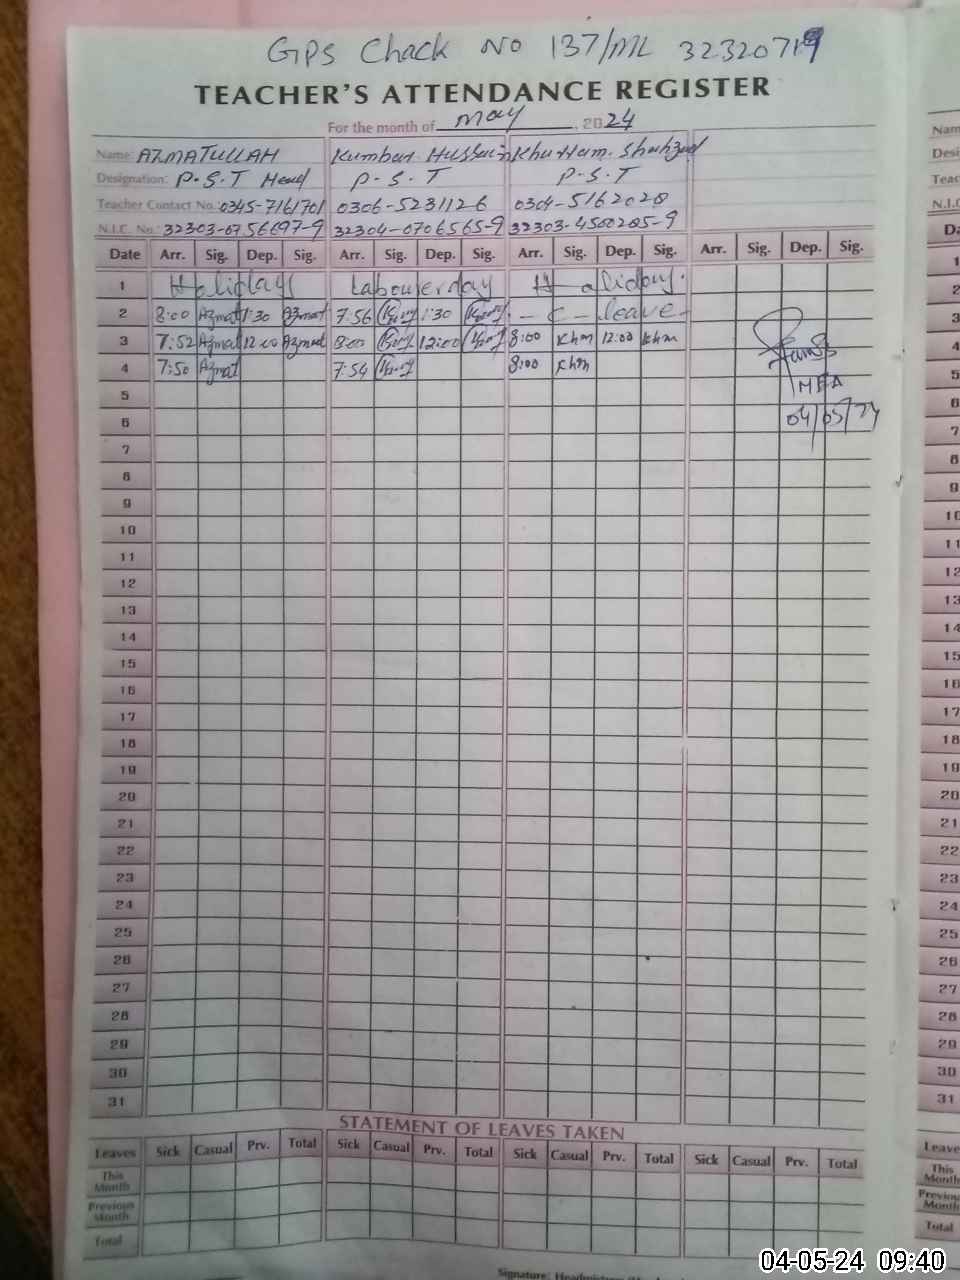 GPS Chack No 137/ML 32320719
TEACHER'S ATTENDANCE REGISTER
For the month of May, 2024
Name: AZMATULLAH Kumbar Hussain Khurram. Shahzad
Designation: P.S.T Head P-S-T P-S-T
Teacher Contact No.: 0345-7161701 0306-5231126 0304-5162020
N.I.C. No.: 32303-0756697-9 32304-0706565-9 32303-4500205-9
Date Arr. Sig. Dep. Sig. Arr. Sig. Dep. Sig. Arr. Sig. Dep. Sig. Arr. Sig. Dep. Sig.
1 Holidays Labouer day Haliday.
2 8:00 Azmat 1:30 Azmat 7:56 1:30 - C - leave -
3 7:52 Azmat 12:00 Azmat 8:00 12:00 8:00 Khm 12:00 Khm
4 7:50 Azmat 7:54 8:00 Khm
MEA
5
04/05/24
6
7
8
9
10
11
12
13
14
15
16
17
18
19
20
21
22
23
24
25
26
27
28
29
30
31
STATEMENT OF LEAVES TAKEN
Leaves Sick Casual Prv. Total Sick Casual Prv. Total Sick Casual Prv. Total Sick Casual Prv. Total
This Month
Previous Month
Total
Signature: Headmistress
04-05-24 09:40